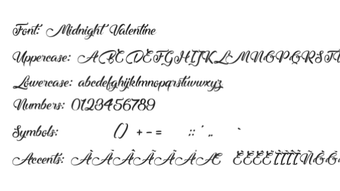 Font: Midnight Valentine
Uppercase: ABCDEFGHIJKLMNOPQRST
Lowercase: abcdefghijklmnopqrstuvwxyz
Numbers: 0123456789
Symbols: () + - = :: ' ,,
Accents: ÀÁÂÃÄÅÆ ÈÉÊËÌÍÎÏÑ